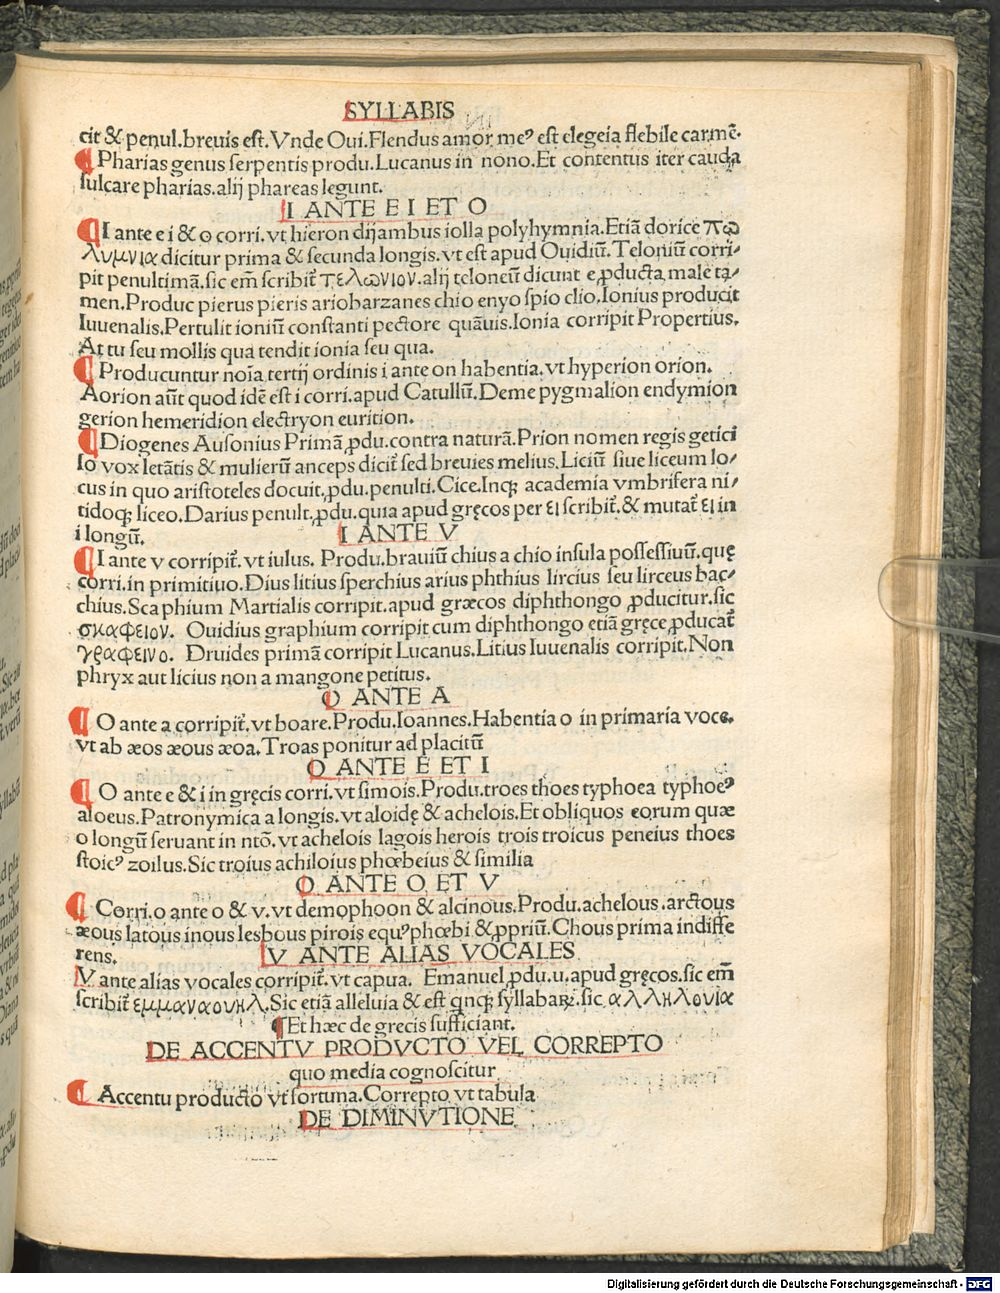 SYLLABIS
cit & penul.breuis est.Vnde Oui.Flendus amor meꝰ est elegeia flebile carmē.
¶ Pharias genus serpentis produ.Lucanus in nono.Et contentus iter cauda
sulcare pharias.alij phareas legunt.
I ANTE E I ET O
¶ I ante e i & o corri.vt hieron dijambus iolla polyhymnia.Etiā dorice πω
λυμνια dicitur prima & secunda longis.vt est apud Ouidiū.Teloniū corri⸗
pit penultimā.sic em̄ scribit᷑ τελωνιον.alij teloneū dicunt e ꝓducta,male ta⸗
men.Produc pierus pieris ariobarzanes chio enyo spio clio.Ionius producit
Iuuenalis.Pertulit ioniū constanti pectore quāuis.Ionia corripit Propertius.
At tu seu mollis qua tendit ionia seu qua.
¶ Producuntur noīa tertij ordinis i ante on habentia.vt hyperion orion.
Aorion aūt quod idē est i corri.apud Catullū.Deme pygmalion endymion
gerion hemeridion electryon eurition.
¶ Diogenes Ausonius Primā ꝓdu.contra naturā.Prion nomen regis getici
Io vox letātis & mulierū anceps dicit᷑ sed breuies melius.Liciū siue liceum lo⸗
cus in quo aristoteles docuit,ꝓdu.penulti.Cice.Inqꝫ academia vmbrifera ni⸗
tidoqꝫ liceo.Darius penult.ꝓdu.quia apud gręcos per ει scribit᷑.& mutat᷑ ει in
i longū.
I ANTE V
¶ I ante v corripit᷑.vt iulus. Produ.brauiū chius a chio insula possessiuū.quę
corri.in primitiuo.Dius litius sperchius arius phthius lircius seu lirceus bac⸗
chius.Scaphium Martialis corripit.apud græcos diphthongo ꝓducitur.sic
σκαφειον. Ouidius graphium corripit cum diphthongo etiā gręce ꝓducat᷑
γραφεινο. Druides primā corripit Lucanus.Litius Iuuenalis corripit.Non
phryx aut licius non a mangone petitus.
O ANTE A
¶ O ante a corripit᷑.vt boare.Produ.Ioannes.Habentia o in primaria voce.
vt ab æos æous æoa.Troas ponitur ad placitū
O ANTE E ET I
¶ O ante e & i in gręcis corri.vt simois.Produ.troes thoes typhoea typhoeꝰ
aloeus.Patronymica a longis.vt aloidę & achelois.Et obliquos eorum quæ
o longū seruant in ntō.vt achelois lagois herois trois troicus peneius thoes
stoicꝰ zoilus.Sic troius achiloius phœbeius & similia
O ANTE O ET V
¶ Corri.o ante o & v.vt demophoon & alcinous.Produ.achelous.arctous
æous latous inous lesbous pirois equꝰ phœbi & ꝓpriū.Chous prima indiffe
rens.
V ANTE ALIAS VOCALES
V ante alias vocales corripit᷑.vt capua. Emanuel ꝓdu.u.apud gręcos.sic em̄
scribit᷑ εμμαναουηλ.Sic etiā alleluia & est qnqꝫ syllabaꝝ.sic αλληλουια
¶ Et hæc de grecis sufficiant.
DE ACCENTV PRODVCTO VEL CORREPTO
quo media cognoscitur
¶ Accentu producto vt fortuna.Correpto vt tabula
DE DIMINVTIONE
Digitalisierung gefördert durch die Deutsche Forschungsgemeinschaft - DFG